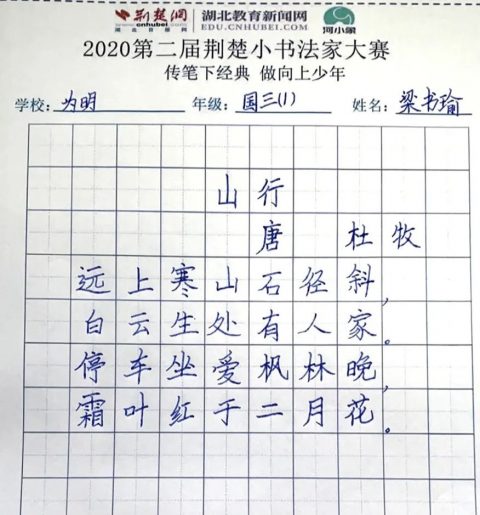 荆楚网 湖北教育新闻网 河小象
www.cnhubei.com EDU.CNHUBEI.COM
2020第二届荆楚小书法家大赛
传笔下经典 做向上少年
学校: 为明 年级: 国三(1) 姓名: 梁书瑜
山行
唐 杜牧
远上寒山石径斜,
白云生处有人家。
停车坐爱枫林晚,
霜叶红于二月花。